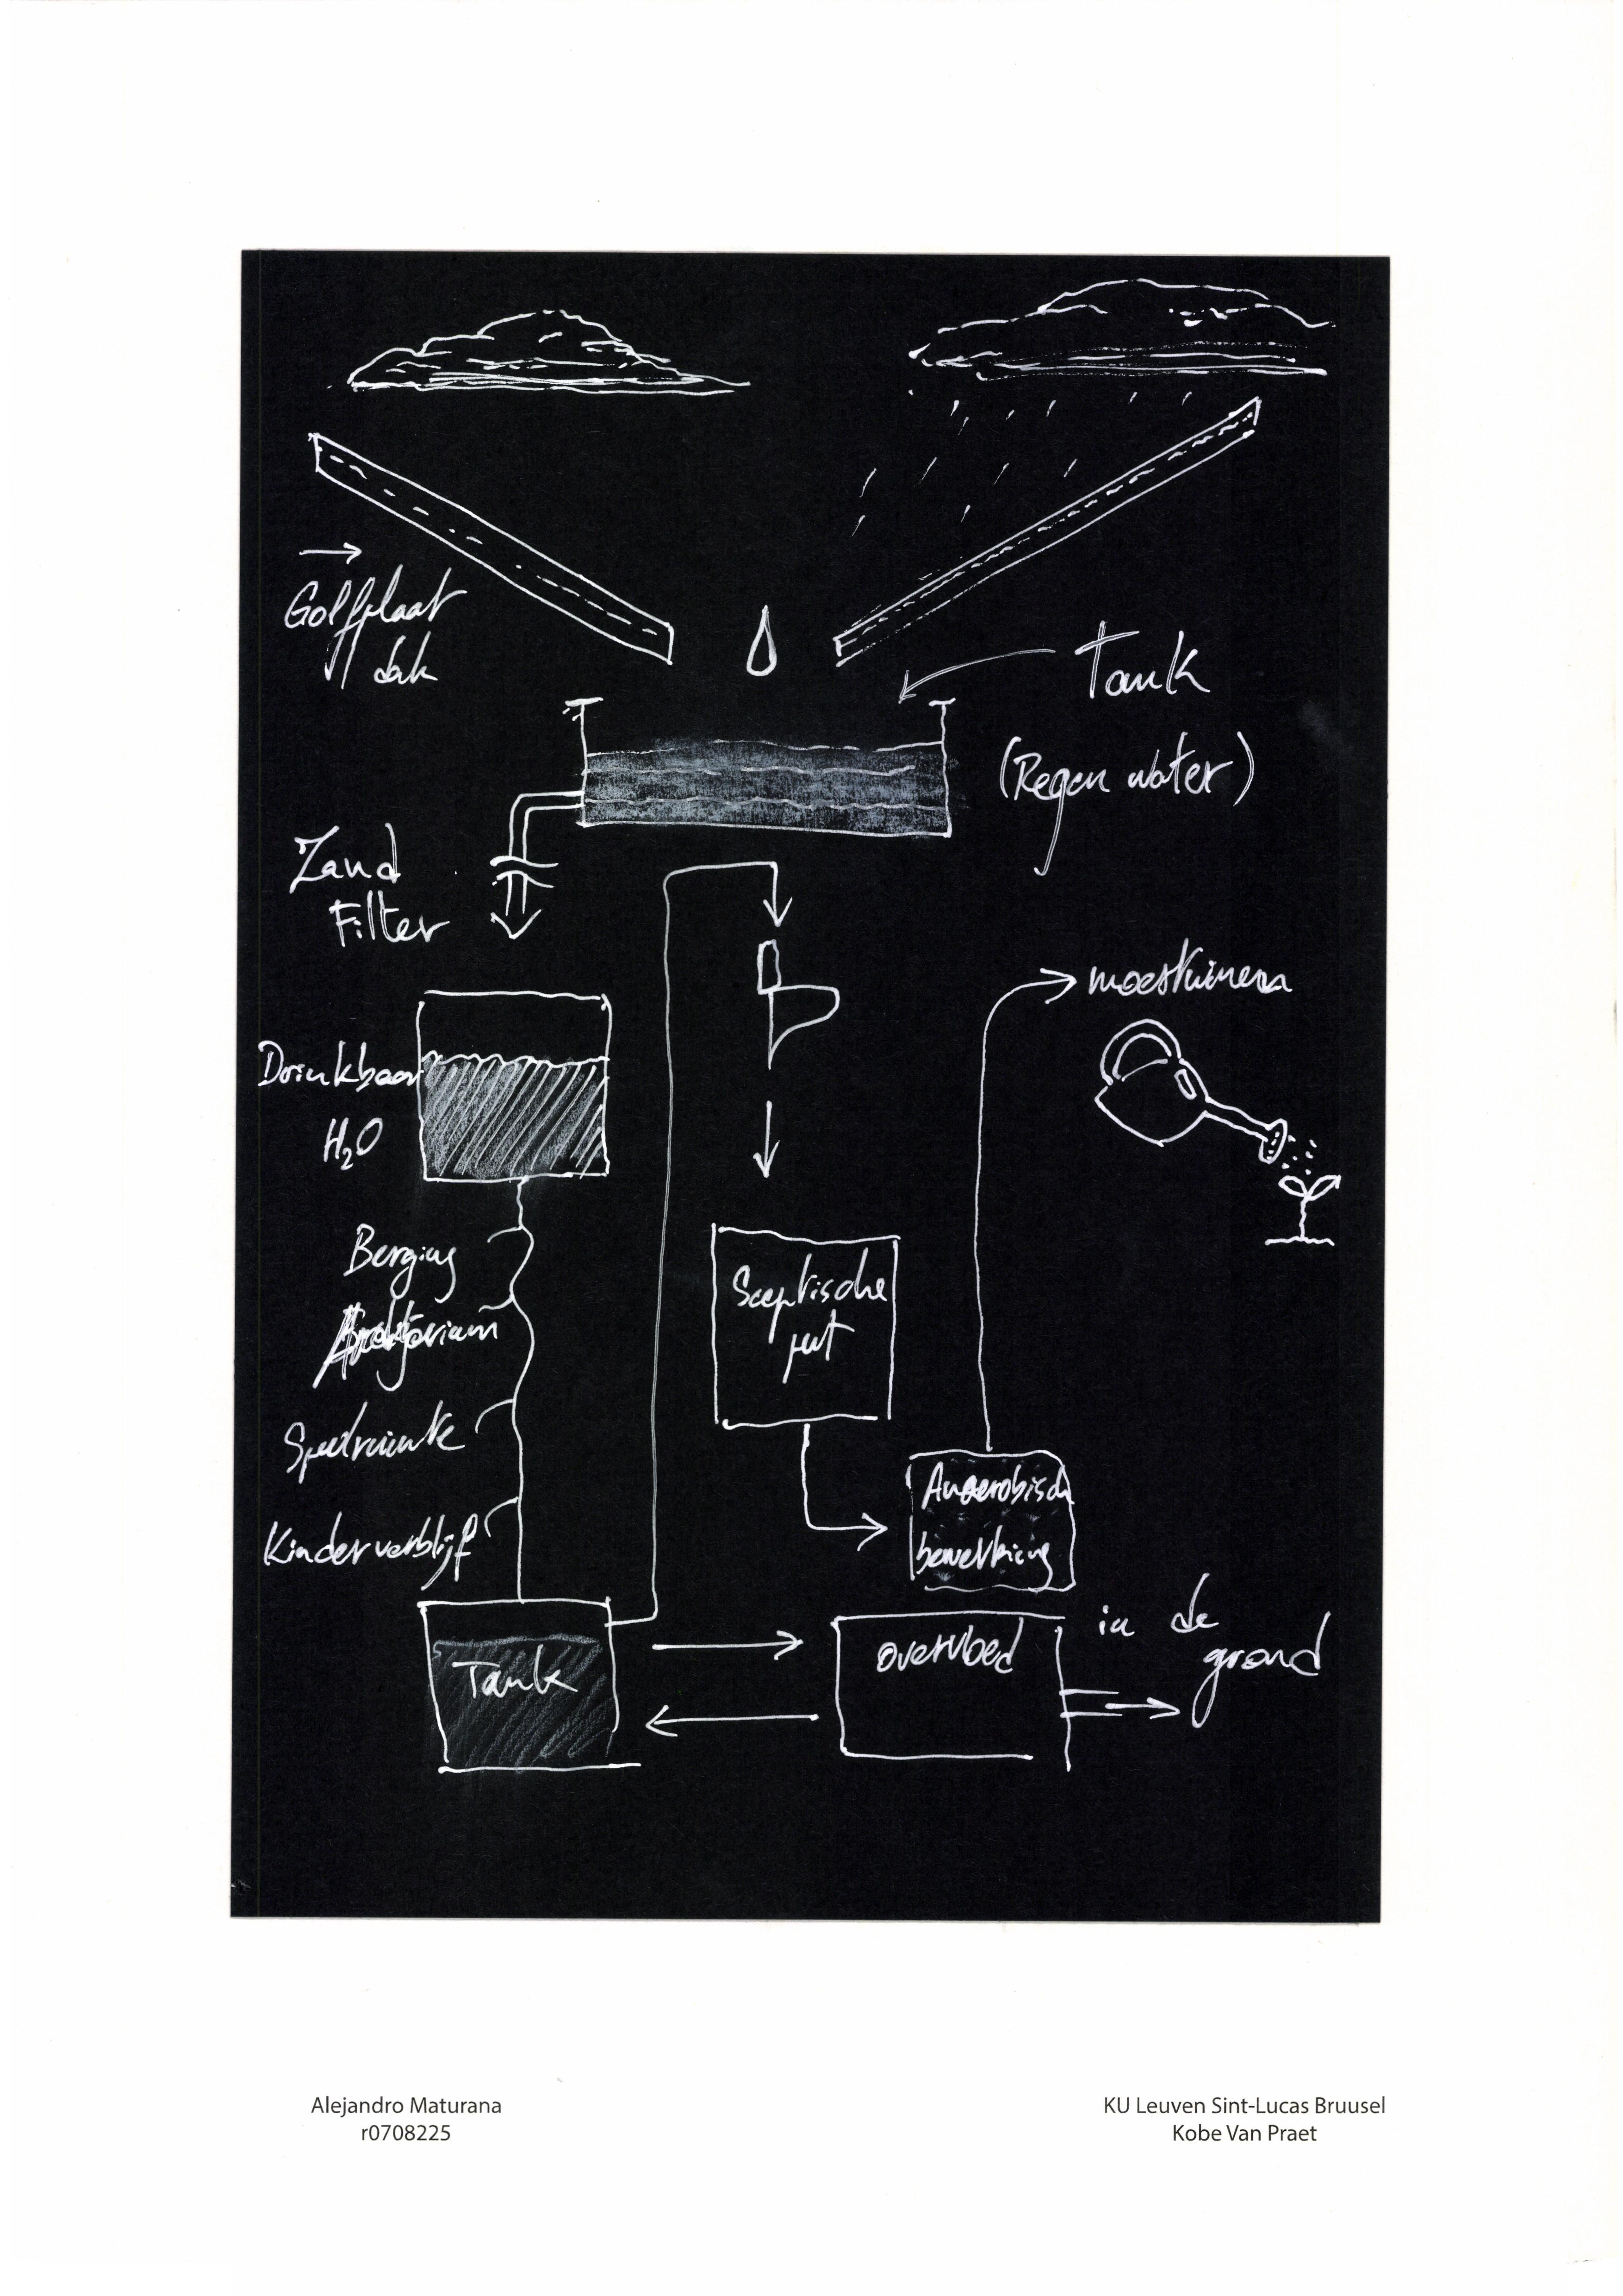 Golfplaat
dak
Tank
(Regen water)
Zand
Filter
moestuinen
Drinkbaar
H₂O
Berging
Sceptische
put
Speelruimte
Kinderverblijf
Anaerobisch
bewerking
Tank
overvloed
in de
grond
Alejandro Maturana
r0708225
KU Leuven Sint-Lucas Bruusel
Kobe Van Praet